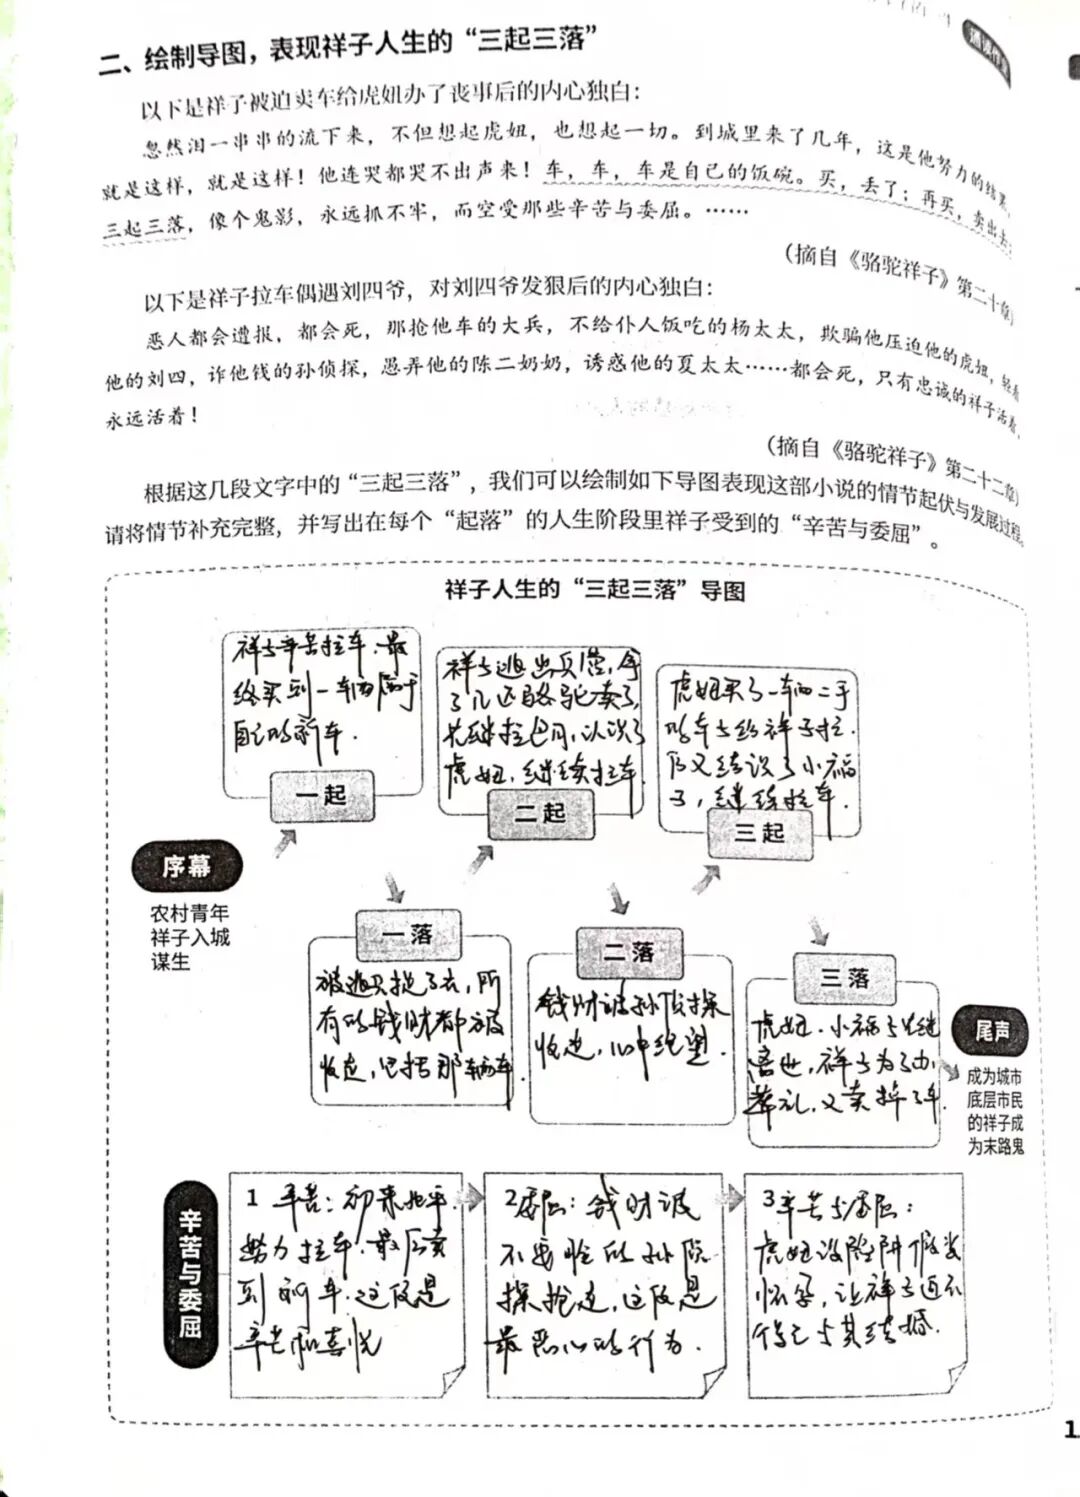 通读作业
二、绘制导图，表现祥子人生的“三起三落”
以下是祥子被迫卖车给虎妞办了丧事后的内心独白：
忽然泪一串串的流下来，不但想起虎妞，也想起一切。到城里来了几年，这是他努力的结果，
就是这样，就是这样！他连哭都哭不出声来！车，车，车是自己的饭碗。买，丢了；再买，卖出去；
三起三落，像个鬼影，永远抓不牢，而空受那些辛苦与委屈。……
（摘自《骆驼祥子》第二十章）
以下是祥子拉车偶遇刘四爷，对刘四爷发狠后的内心独白：
恶人都会遭报，都会死，那抢他车的大兵，不给仆人饭吃的杨太太，欺骗他压迫他的虎妞，轻看
他的刘四，诈他钱的孙侦探，愚弄他的陈二奶奶，诱惑他的夏太太……都会死，只有忠诚的祥子活着，
永远活着！
（摘自《骆驼祥子》第二十二章）
根据这几段文字中的“三起三落”，我们可以绘制如下导图表现这部小说的情节起伏与发展过程。
请将情节补充完整，并写出在每个“起落”的人生阶段里祥子受到的“辛苦与委屈”。
祥子人生的“三起三落”导图
祥子辛苦拉车，最
终买到一辆属于
自己的新车．
一起
祥子逃出兵营，拿
了几匹骆驼卖了，
先继拉包月，认识了
虎妞，继续拉车．
二起
虎妞买了一辆二手
的车子给祥子拉．
后又结识了小福
子，继续拉车．
三起
序幕
农村青年
祥子入城
谋生
一落
被逃兵拦了去，所
有的钱财都被
收走，包括那辆车．
二落
钱财被孙侦探
收走，心中绝望．
三落
虎妞．小福子先继
离世，祥子为了办
葬礼，又卖掉了车．
尾声
成为城市
底层市民
的祥子成
为末路鬼
辛苦与委屈
1 辛苦：初来北平．
努力拉车，最后卖
到新车，这段是
辛苦和喜悦
2委屈：钱财被
不要脸的孙侦
探抢走，这段是
最恶心的行为．
3辛苦与委屈：
虎妞设陷阱假装
怀孕，让祥子迫不
得已与其结婚．
1